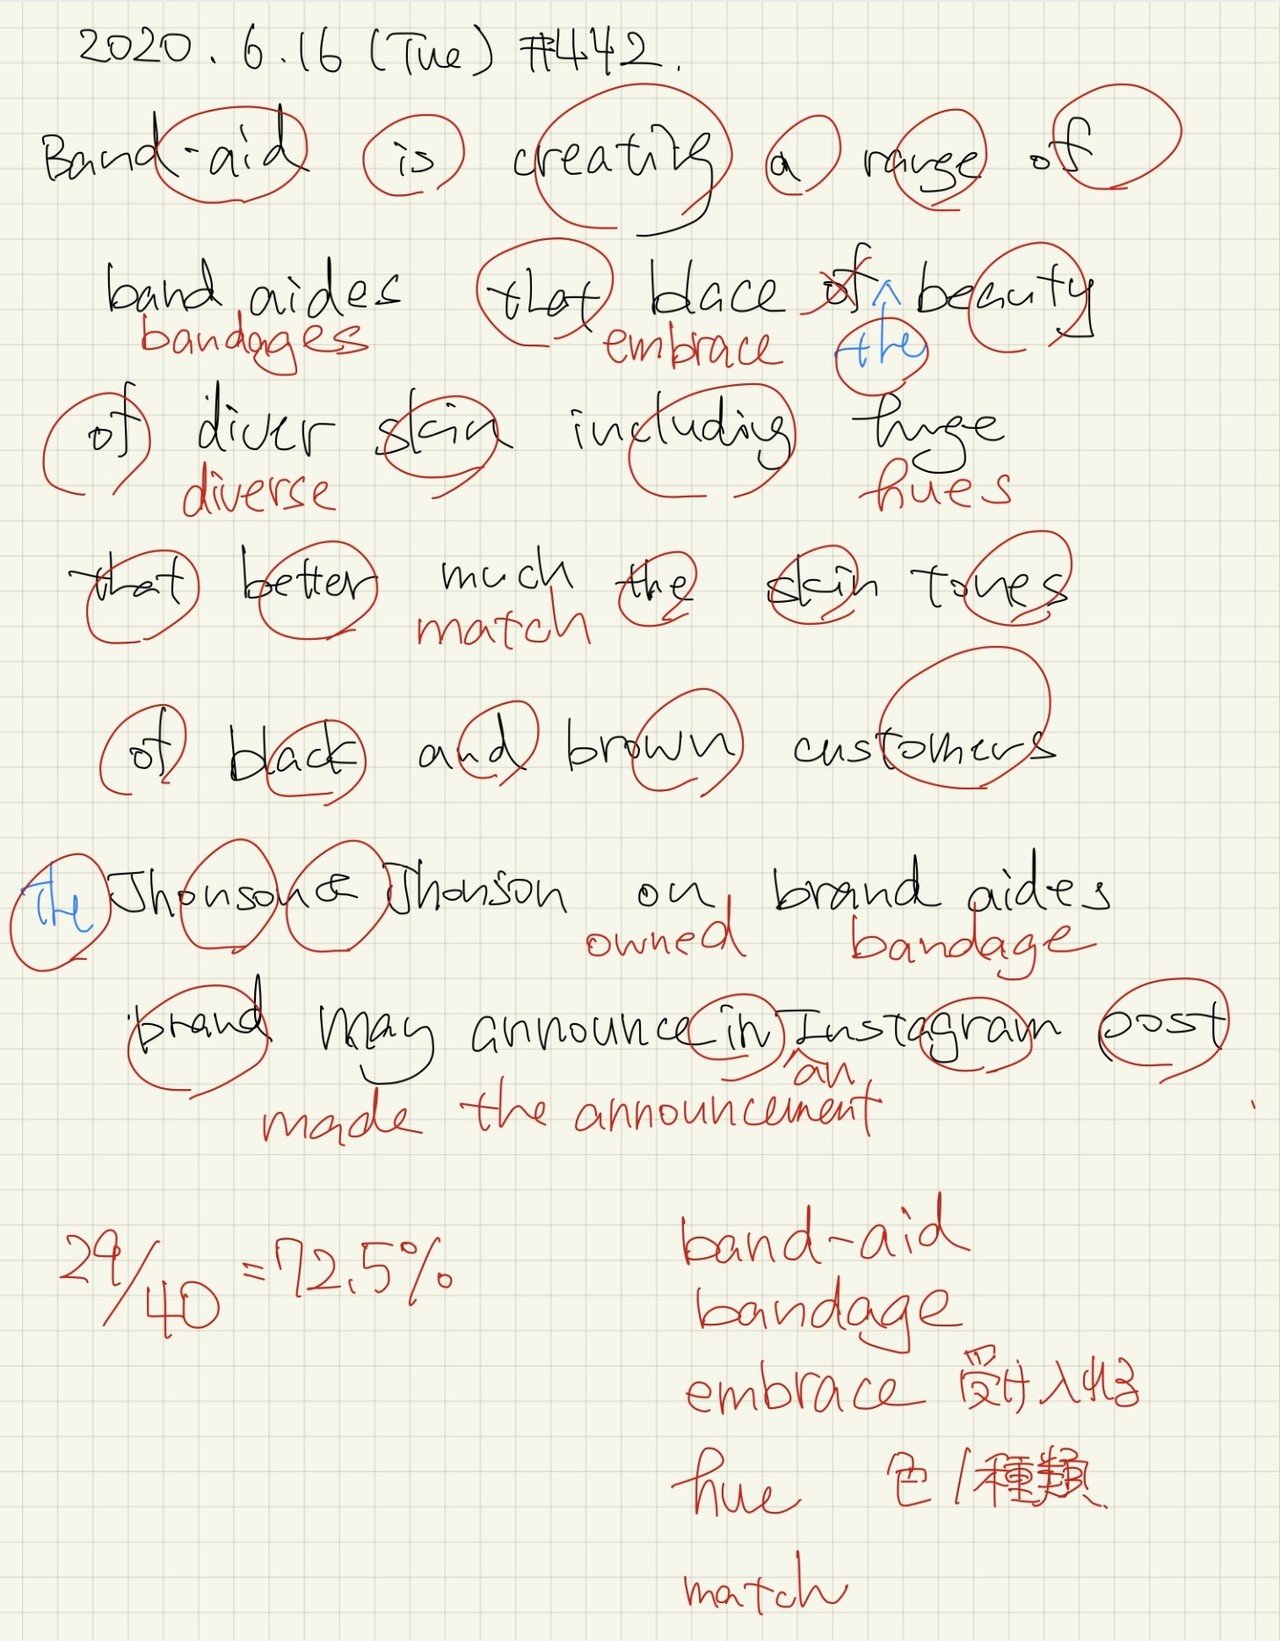 2020.6.16 (Tue) #442.
Band-aid is creating a range of
band aides that blace of ^ beauty
bandages embrace the
of diver skin including huge
diverse hues
that better much the skin tones
match
of black and brown customers
The Jhonson & Jhonson on brand aides
owned bandage
brand may announce in Instagram post
^ an
made the announcement
29/40 = 72.5%
band-aid
bandage
embrace 受け入れる
hue 色/種類
match